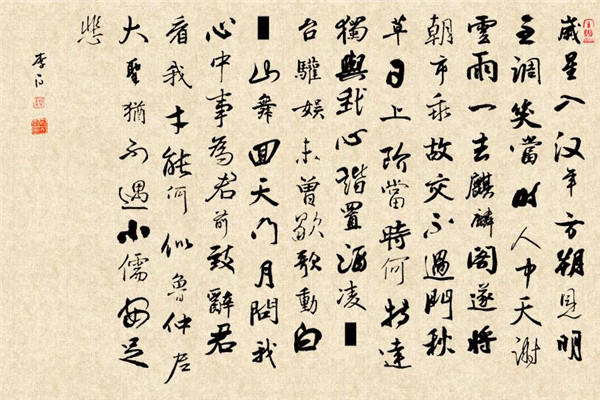 歲星入汉年方朔見明
主調笑當時人中天謝
雲雨一去麒麟閣遂將
朝市乖故交不過門秋
草日上階當時何特達
獨與我心諧置酒凌
台驩娛未曾歇歌動白
山舞回天門月問我
心中事為君前致辭君
看我才能何似魯仲尼
大聖猶不遇小儒安足
悲
李白